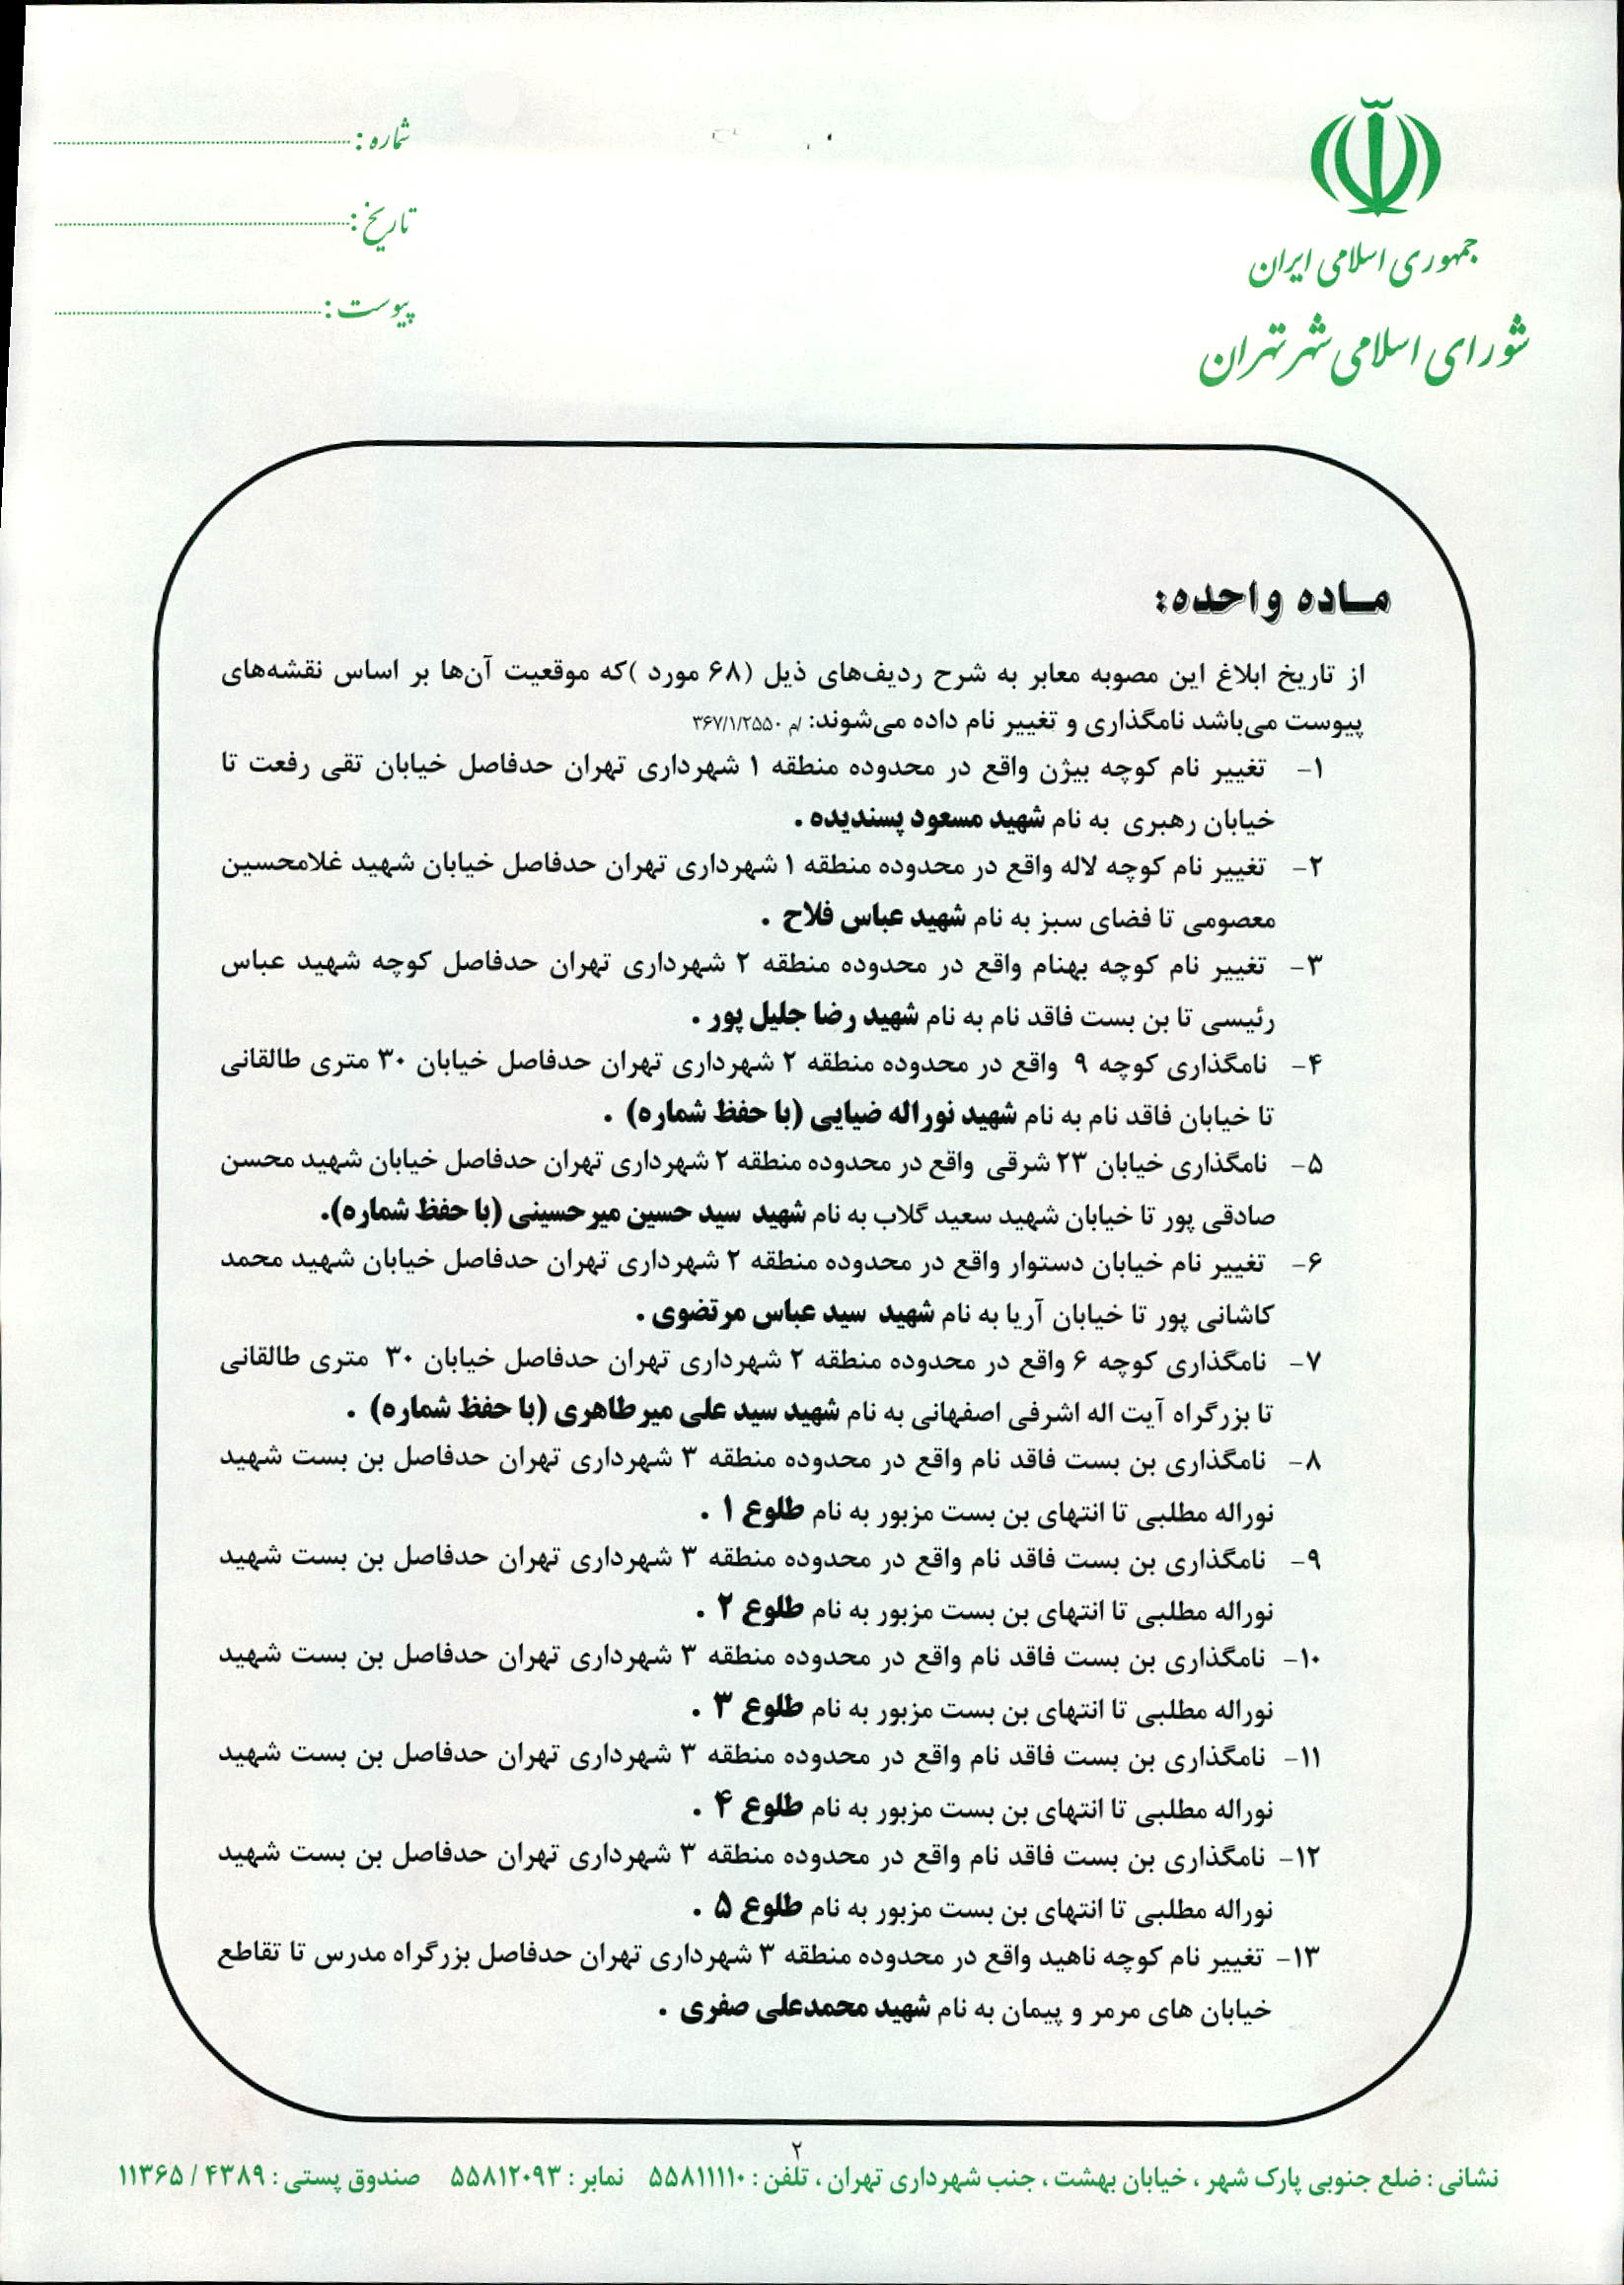 جمهوری اسلامی ایران
شورای اسلامی شهر تهران
شماره :
تاریخ :
پیوست :
ماده واحده:
از تاریخ ابلاغ این مصوبه معابر به شرح ردیف‌های ذیل (۶۸ مورد )که موقعیت آن‌ها بر اساس نقشه‌های
پیوست می‌باشد نامگذاری و تغییر نام داده می‌شوند: /م ۳۶۷/۱/۲۵۵۰
۱- تغییر نام کوچه بیژن واقع در محدوده منطقه ۱ شهرداری تهران حدفاصل خیابان تقی رفعت تا
خیابان رهبری به نام شهید مسعود پسندیده .
۲- تغییر نام کوچه لاله واقع در محدوده منطقه ۱ شهرداری تهران حدفاصل خیابان شهید غلامحسین
معصومی تا فضای سبز به نام شهید عباس فلاح .
۳- تغییر نام کوچه بهنام واقع در محدوده منطقه ۲ شهرداری تهران حدفاصل کوچه شهید عباس
رئیسی تا بن بست فاقد نام به نام شهید رضا جلیل پور .
۴- نامگذاری کوچه ۹ واقع در محدوده منطقه ۲ شهرداری تهران حدفاصل خیابان ۳۰ متری طالقانی
تا خیابان فاقد نام به نام شهید نوراله ضیایی (با حفظ شماره) .
۵- نامگذاری خیابان ۲۳ شرقی واقع در محدوده منطقه ۲ شهرداری تهران حدفاصل خیابان شهید محسن
صادقی پور تا خیابان شهید سعید گلاب به نام شهید سید حسین میرحسینی (با حفظ شماره).
۶- تغییر نام خیابان دستوار واقع در محدوده منطقه ۲ شهرداری تهران حدفاصل خیابان شهید محمد
کاشانی پور تا خیابان آریا به نام شهید سید عباس مرتضوی .
۷- نامگذاری کوچه ۶ واقع در محدوده منطقه ۲ شهرداری تهران حدفاصل خیابان ۳۰ متری طالقانی
تا بزرگراه آیت اله اشرفی اصفهانی به نام شهید سید علی میرطاهری (با حفظ شماره) .
۸- نامگذاری بن بست فاقد نام واقع در محدوده منطقه ۳ شهرداری تهران حدفاصل بن بست شهید
نوراله مطلبی تا انتهای بن بست مزبور به نام طلوع ۱ .
۹- نامگذاری بن بست فاقد نام واقع در محدوده منطقه ۳ شهرداری تهران حدفاصل بن بست شهید
نوراله مطلبی تا انتهای بن بست مزبور به نام طلوع ۲ .
۱۰- نامگذاری بن بست فاقد نام واقع در محدوده منطقه ۳ شهرداری تهران حدفاصل بن بست شهید
نوراله مطلبی تا انتهای بن بست مزبور به نام طلوع ۳ .
۱۱- نامگذاری بن بست فاقد نام واقع در محدوده منطقه ۳ شهرداری تهران حدفاصل بن بست شهید
نوراله مطلبی تا انتهای بن بست مزبور به نام طلوع ۴ .
۱۲- نامگذاری بن بست فاقد نام واقع در محدوده منطقه ۳ شهرداری تهران حدفاصل بن بست شهید
نوراله مطلبی تا انتهای بن بست مزبور به نام طلوع ۵ .
۱۳- تغییر نام کوچه ناهید واقع در محدوده منطقه ۳ شهرداری تهران حدفاصل بزرگراه مدرس تا تقاطع
خیابان های مرمر و پیمان به نام شهید محمدعلی صفری .
۲
نشانی : ضلع جنوبی پارک شهر ، خیابان بهشت ، جنب شهرداری تهران ، تلفن : ۵۵۸۱۱۱۱۰ نمابر : ۵۵۸۱۲۰۹۳ صندوق پستی : ۴۳۸۹ / ۱۱۳۶۵